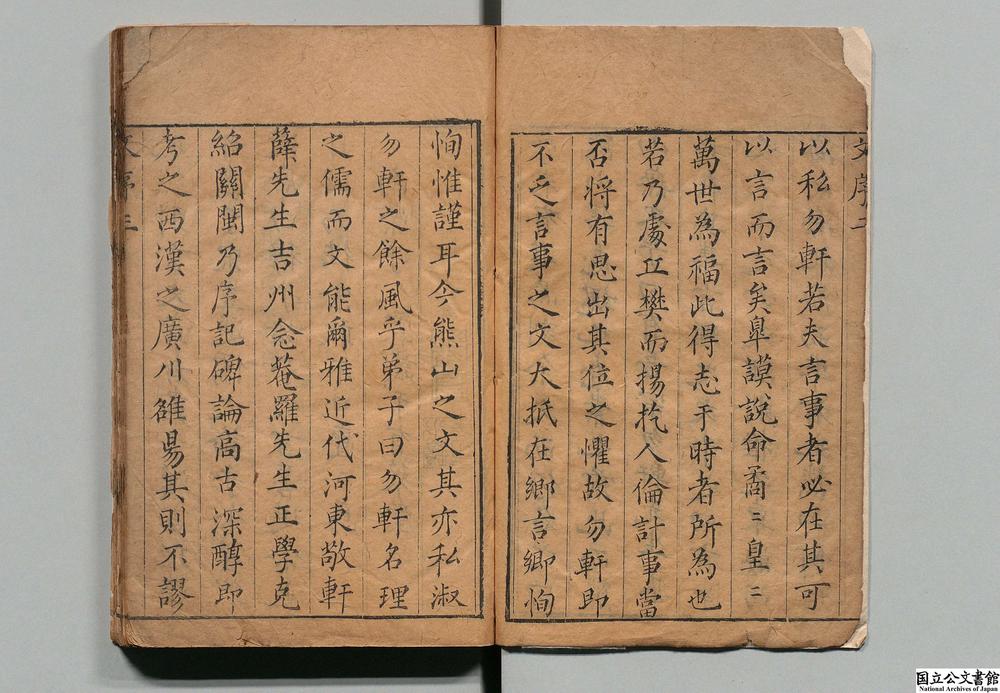 文序二
以私勿軒若夫言事者必在其可
以言而言矣臯謨說命矞〻皇〻
萬世為福此得志于時者所為也
若乃處丘樊而揚扢人倫計事當
否將有思出其位之懼故勿軒即
不乏言事之文大抵在鄉言鄉恂
恂惟謹耳今熊山之文其亦私淑
勿軒之餘風乎弟子曰勿軒名理
之儒而文能爾雅近代河東敬軒
薛先生吉州念菴羅先生正學克
紹關閩乃序記碑論高古深醇即
考之西漢之廣川雒昜其則不謬
文序三
国立公文書館
National Archives of Japan